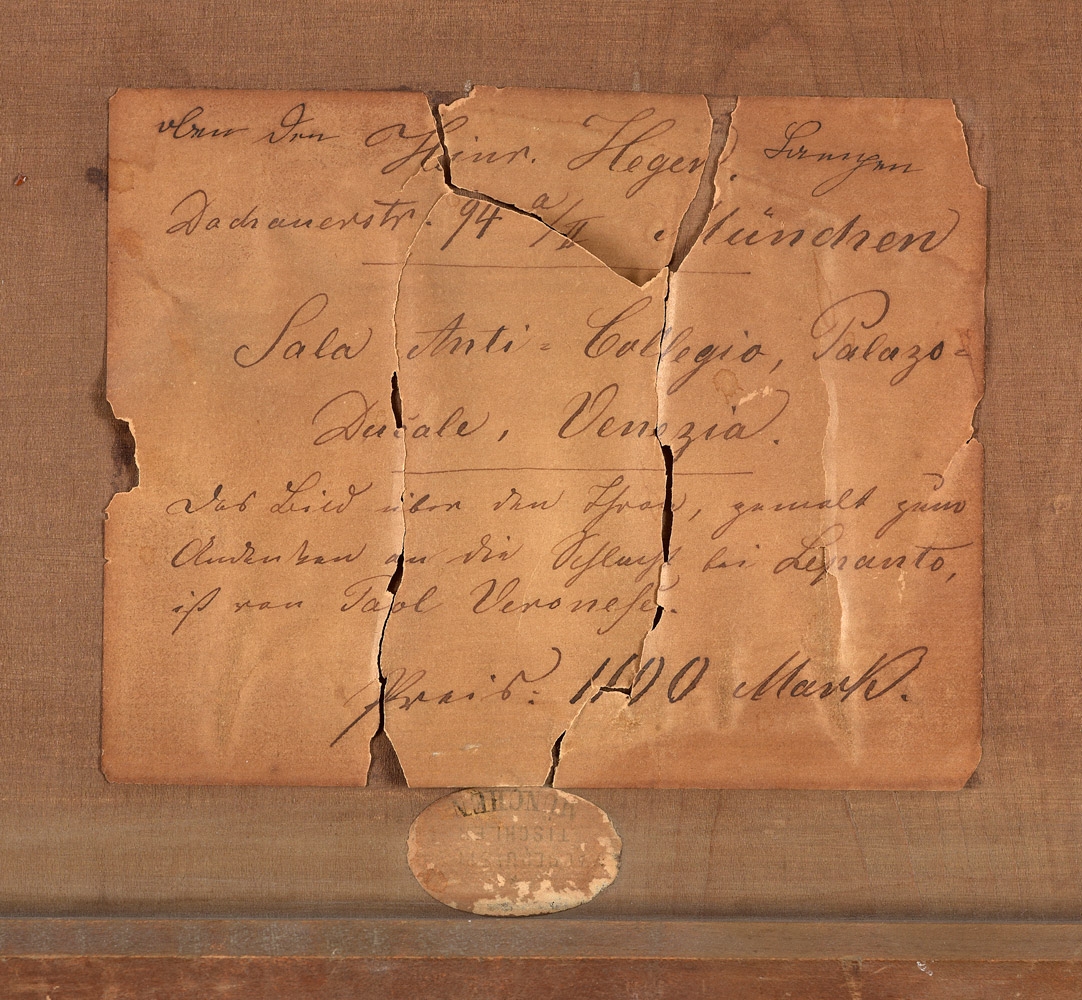 oben den Heinr. Heger.
Dachauerstr. 94 a/II München
Sala Anti-Collegio, Palazo-
Ducale, Venezia.
Das Bild über den Thron, gemalt zum
Andenken an die Schlacht bei Lepanto,
ist von Paol Veronese.
Preis: 1100 Mark.
MÜNCHEN
TISCHLER